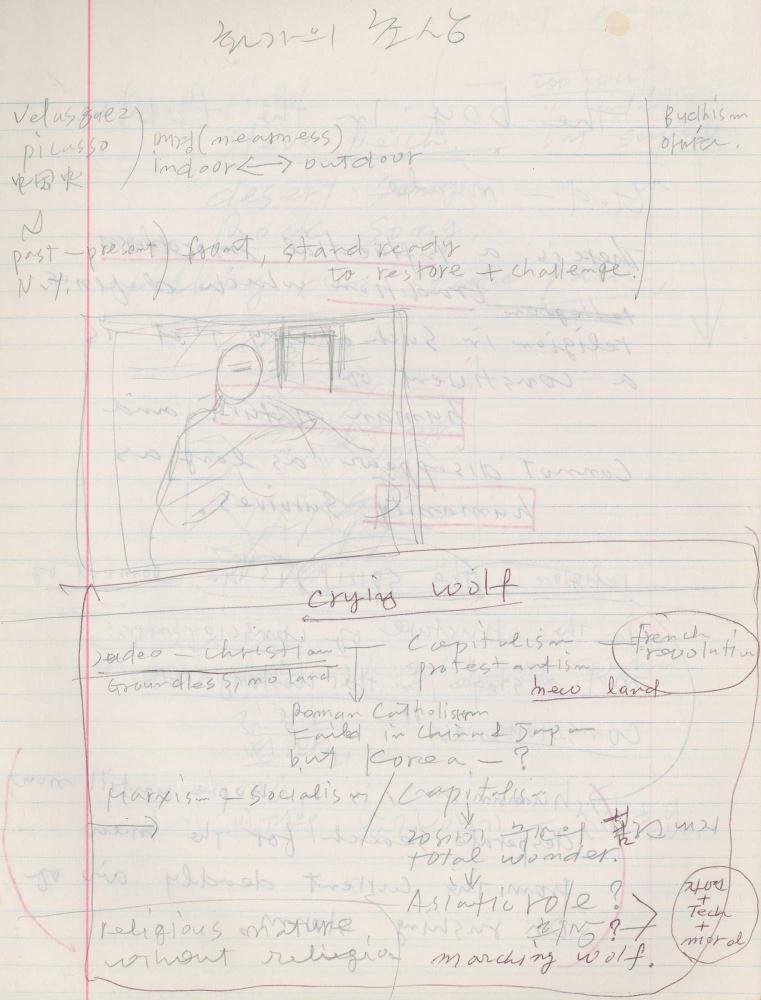 화가의 초상
Velasquez
picasso
(nearness)
indoor ↔ outdoor
Budhism
N
past – present
N.Y.
front, stand ready
to restore + challenge.
crying wolf
Judeo – Christian
Groundless, no land
Capitalism
protestantism
new land
French
revolution
Roman Catholism
Failed in China & Japan
but Korea – ?
Marxism – socialism / Capitalism
20세기
total wonder.
Asiatic role ?
marching wolf.
자연
+
Tech
+
moral
religious nature
without religion